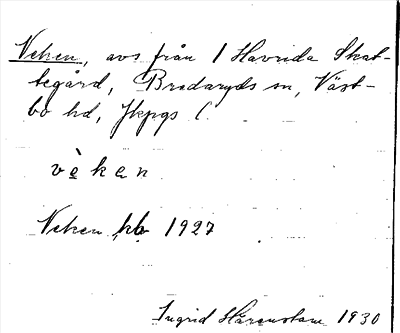 Veken, avs från 1 Havrida Skat-
tegård, Bredaryds sn, Väst-
bo hd, Jkpgs l.
vèken
Veken kb 1927
Ingrid Härenstam 1930